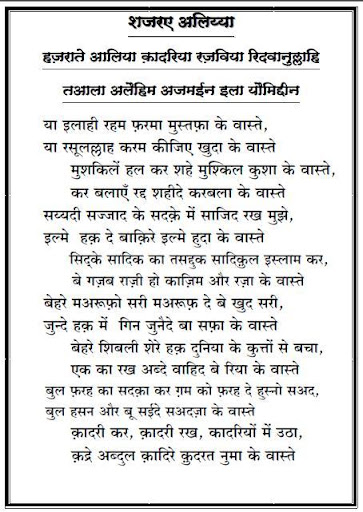 शजरए अलिय्या
हज़राते आलिया क़ादरिया रज़विया रिदवानुल्लाहि
तआला अलैहिम अजमईन इला यौमिद्दीन
या इलाही रहम फ़रमा मुस्तफ़ा के वास्ते,
या रसूलल्लाह करम कीजिए खुदा के वास्ते
मुशकिलें हल कर शहे मुश्किल कुशा के वास्ते,
कर बलाएँ रद्द शहीदे करबला के वास्ते
सय्यदी सज्जाद के सदक़े में साजिद रख मुझे,
इल्मे हक़ दे बाक़िरे इल्मे हुदा के वास्ते
सिद्के सादिक का तसद्दुक सादिकुल इस्लाम कर,
बे गज़ब राज़ी हो काज़िम और रज़ा के वास्ते
बेहरे मअरूफ़ो सरी मअरूफ़ दे बे खुद सरी,
जुन्दे हक़ में गिन जुनैदे बा सफ़ा के वास्ते
बेहरे शिबली शेरे हक़ दुनिया के कुत्तों से बचा,
एक का रख अब्दे वाहिद बे रिया के वास्ते
बुल फ़रह का सदक़ा कर ग़म को फ़रह दे हुस्नो सअद,
बुल हसन और बू सईदे सअदज़ा के वास्ते
क़ादरी कर, क़ादरी रख, कादरियों में उठा,
क़द्रे अब्दुल क़ादिरे क़ुदरत नुमा के वास्ते